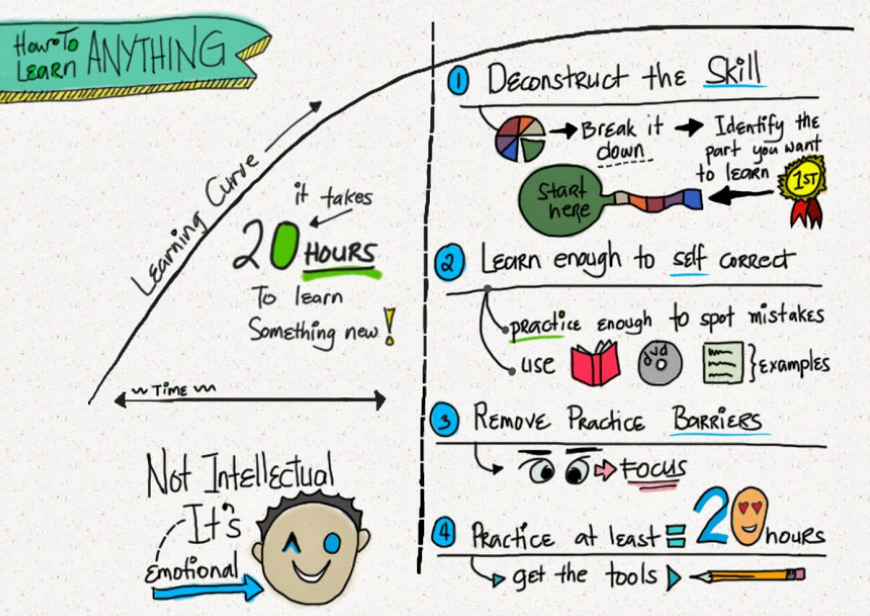 How To
Learn ANYTHING
Learning Curve
it takes
20 HOURS
To learn
Something new!
~ Time ~
Not Intellectual
It's
Emotional
1 Deconstruct the Skill
Break it
down
Identify the
part you want
to learn
1ST
Start
here
2 Learn enough to self correct
practice enough to spot mistakes
use } Examples
DVD
3 Remove Practice Barriers
Focus
4 Practice at least = 20 hours
get the tools